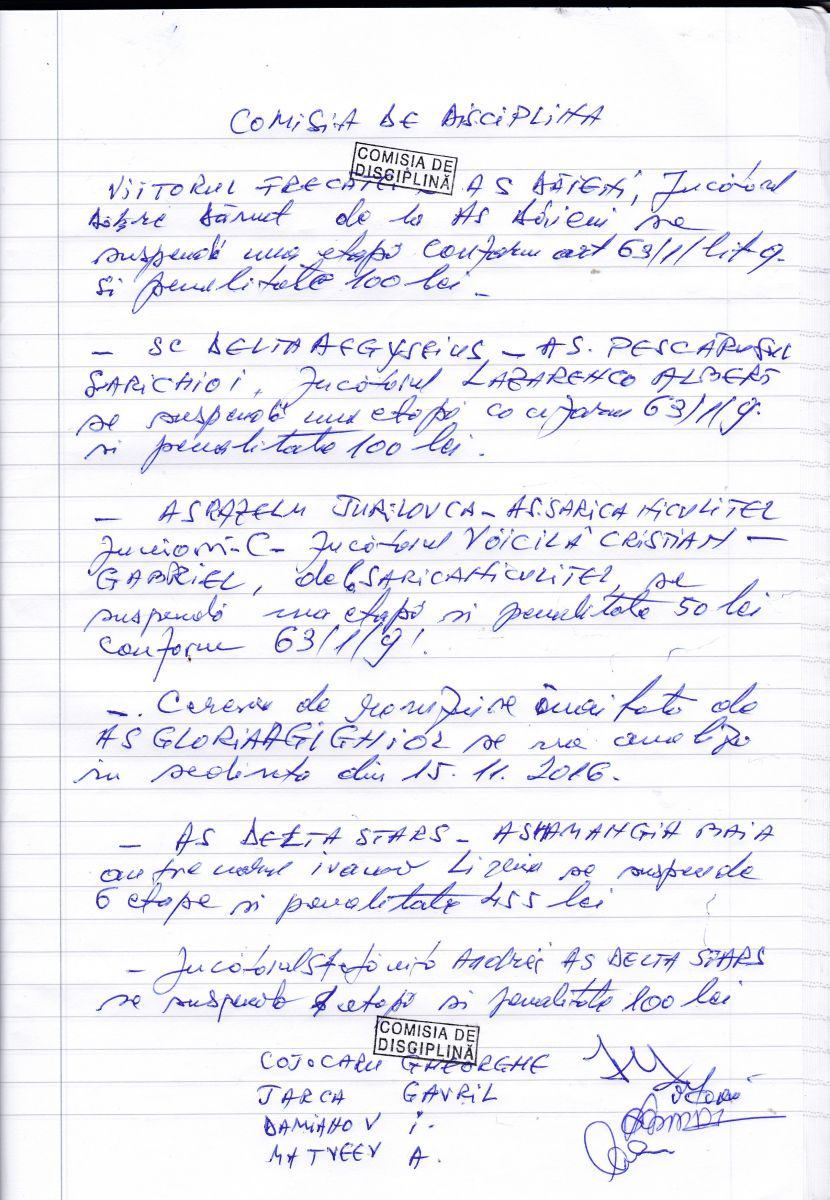 COMISIA DE DISCIPLINA
COMISIA DE
DISCIPLINĂ
VIITORUL FRECĂȚEI AS BĂIENI, Jucătorul
de la AS Băieni se
suspendă una etapă conform art 63/1/lit g.
si penalitate 100 lei.
– SC DELTA AEGYSEIUS – AS. PESCĂRUSUL
SARICHIOI, Jucătorul LAZARENCO ALBERT
se suspendă una etapă conform 63/1/g.
si penalitate 100 lei.
– AS RAZELM JURILOVCA – AS.SARICA NICULITEL
Juniori-C- Jucătorul VOICILĂ CRISTIAN –
GABRIEL, de la SARICA NICULITEL, se
suspendă una etapă si penalitate 50 lei
conform 63/1/g!
–. Cererea de înaitata de
AS GLORIA AGIGHIOL se va analiza
in sedinta din 15.11.2016.
– AS DELTA STARS – AS HAMANGIA BAIA
antrenorul ivanov se suspenda
6 etape si penalitate 455 lei
– Jucătorul Andrei AS DELTA STARS
se suspenda etapă si penalitate 100 lei
COMISIA DE
DISCIPLINĂ
COJOCARU GHEORGHE
TARCA GAVRIL
DAMIANOV I.
MATVEEV A.